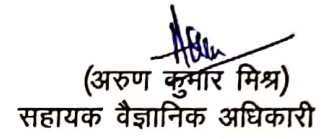 (अरुण कुमार मिश्र)
सहायक वैज्ञानिक अधिकारी